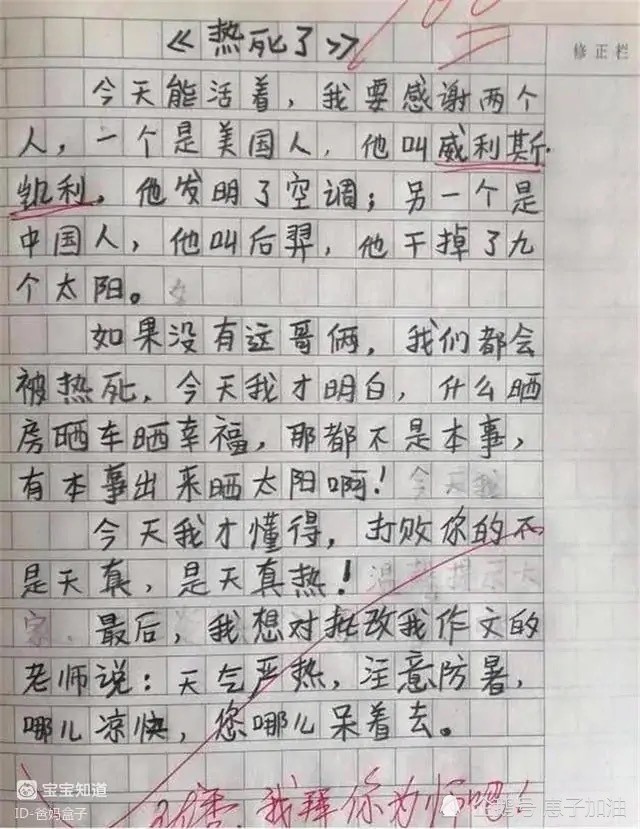 《热死了》
修正栏
今天能活着，我要感谢两个
人，一个是美国人，他叫威利斯·
凯利，他发明了空调；另一个是
中国人，他叫后羿，他干掉了九
个太阳。
如果没有这哥俩，我们都会
被热死，今天我才明白，什么晒
房晒车晒幸福，那都不是本事，
有本事出来晒太阳啊！
今天我才懂得，打败你的不
是天真，是天真热！
最后，我想对批改我作文的
老师说：天气严热，注意防暑，
哪儿凉快，您哪儿呆着去。
我拜你为师吧！
宝宝知道
ID-爸妈盒子